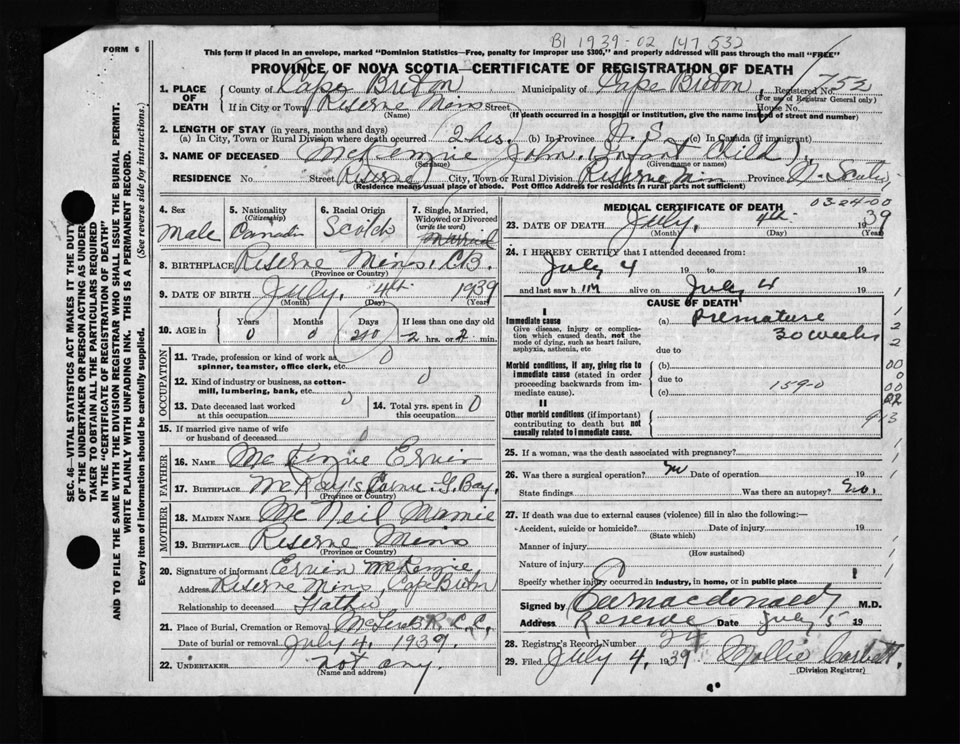 B1 1939-02 147 532
FORM 6
This form if placed in an envelope, marked "Dominion Statistics—Free, penalty for improper use $300," and properly addressed will pass through the mail "FREE"
PROVINCE OF NOVA SCOTIA—CERTIFICATE OF REGISTRATION OF DEATH
1. PLACE OF DEATH
County of Cape Breton Municipality of Cape Breton Registered No. 752
(For use of Registrar General only)
If in City or Town Reserne Mines Street House No.
(Name) (If death occurred in a hospital or institution, give the name instead of street and number)
2. LENGTH OF STAY (in years, months and days)
(a) In City, Town or Rural Division where death occurred 2 hrs. (b) In Province N. S. (c) In Canada (if immigrant)
3. NAME OF DECEASED McKenzie John. (Infant Child).
(Surname) (Given name or names)
RESIDENCE No. Street Reserne City, Town or Rural Division Reserne Min Province N. Scotia,
(Residence means usual place of abode. Post Office Address for residents in rural parts not sufficient)
4. Sex
Male
5. Nationality
(Citizenship)
Canadin
6. Racial Origin
Scotch
7. Single, Married, Widowed or Divorced
(write the word)
Married
8. BIRTHPLACE Reserne Mins. C.B.
(Province or Country)
9. DATE OF BIRTH July. 4th 1939
(Month) (Day) (Year)
10. AGE in
Years Months Days If less than one day old
0 0 210 2 hrs. or 2 min.
OCCUPATION
11. Trade, profession or kind of work as spinner, teamster, office clerk, etc. 0
12. Kind of industry or business, as cotton-mill, lumbering, bank, etc. 0
13. Date deceased last worked at this occupation. 0
14. Total yrs. spent in this occupation. 0
15. If married give name of wife or husband of deceased 0
FATHER
16. NAME McKenzie Ervin
17. BIRTHPLACE McKay's Corner. G. Bay.
(Province or Country)
MOTHER
18. MAIDEN NAME McNeil Mamie
19. BIRTHPLACE Reserne Mins
(Province or Country)
20. Signature of informant Ervin McKenzie,
Address Reserne Mins, Cape Breton
Relationship to deceased Father
21. Place of Burial, Cremation or Removal
Date of burial or removal July 4, 1939.
22. UNDERTAKER not any.
(Name and address)
MEDICAL CERTIFICATE OF DEATH
03-24-00
23. DATE OF DEATH July, 4th 1939
(Month) (Day) (Year)
24. I HEREBY CERTIFY that I attended deceased from:
July 4 19 to 19
and last saw h im alive on July 4 19
CAUSE OF DEATH
I
Immediate cause
Give disease, injury or complication which caused death, not the mode of dying, such as heart failure, asphyxia, asthenia, etc
(a) Premature
30 weeks
due to
Morbid conditions, if any, giving rise to immediate cause (stated in order proceeding backwards from immediate cause).
(b)
due to 159-0
(c)
II
Other morbid conditions (if important) contributing to death but not causally related to immediate cause.
25. If a woman, was the death associated with pregnancy?
26. Was there a surgical operation? no Date of operation 19
State findings Was there an autopsy? no.
27. If death was due to external causes (violence) fill in also the following:—
Accident, suicide or homicide? Date of injury 19
(State which)
Manner of injury
(How sustained)
Nature of injury
Specify whether injury occurred in industry, in home, or in public place
Signed by M.D.
Address Reserve Date July 5 19
28. Registrar's Record Number 24
29. Filed July 4, 1939 Mollie Corbett.
(Division Registrar)
SEC. 46—VITAL STATISTICS ACT MAKES IT THE DUTY OF THE UNDERTAKER OR PERSON ACTING AS UNDERTAKER TO OBTAIN ALL THE PARTICULARS REQUIRED IN THE "CERTIFICATE OF REGISTRATION OF DEATH"
AND TO FILE THE SAME WITH THE DIVISION REGISTRAR WHO SHALL ISSUE THE BURIAL PERMIT.
WRITE PLAINLY WITH UNFADING INK. THIS IS A PERMANENT RECORD.
Every item of information should be carefully supplied. (See reverse side for instructions.)